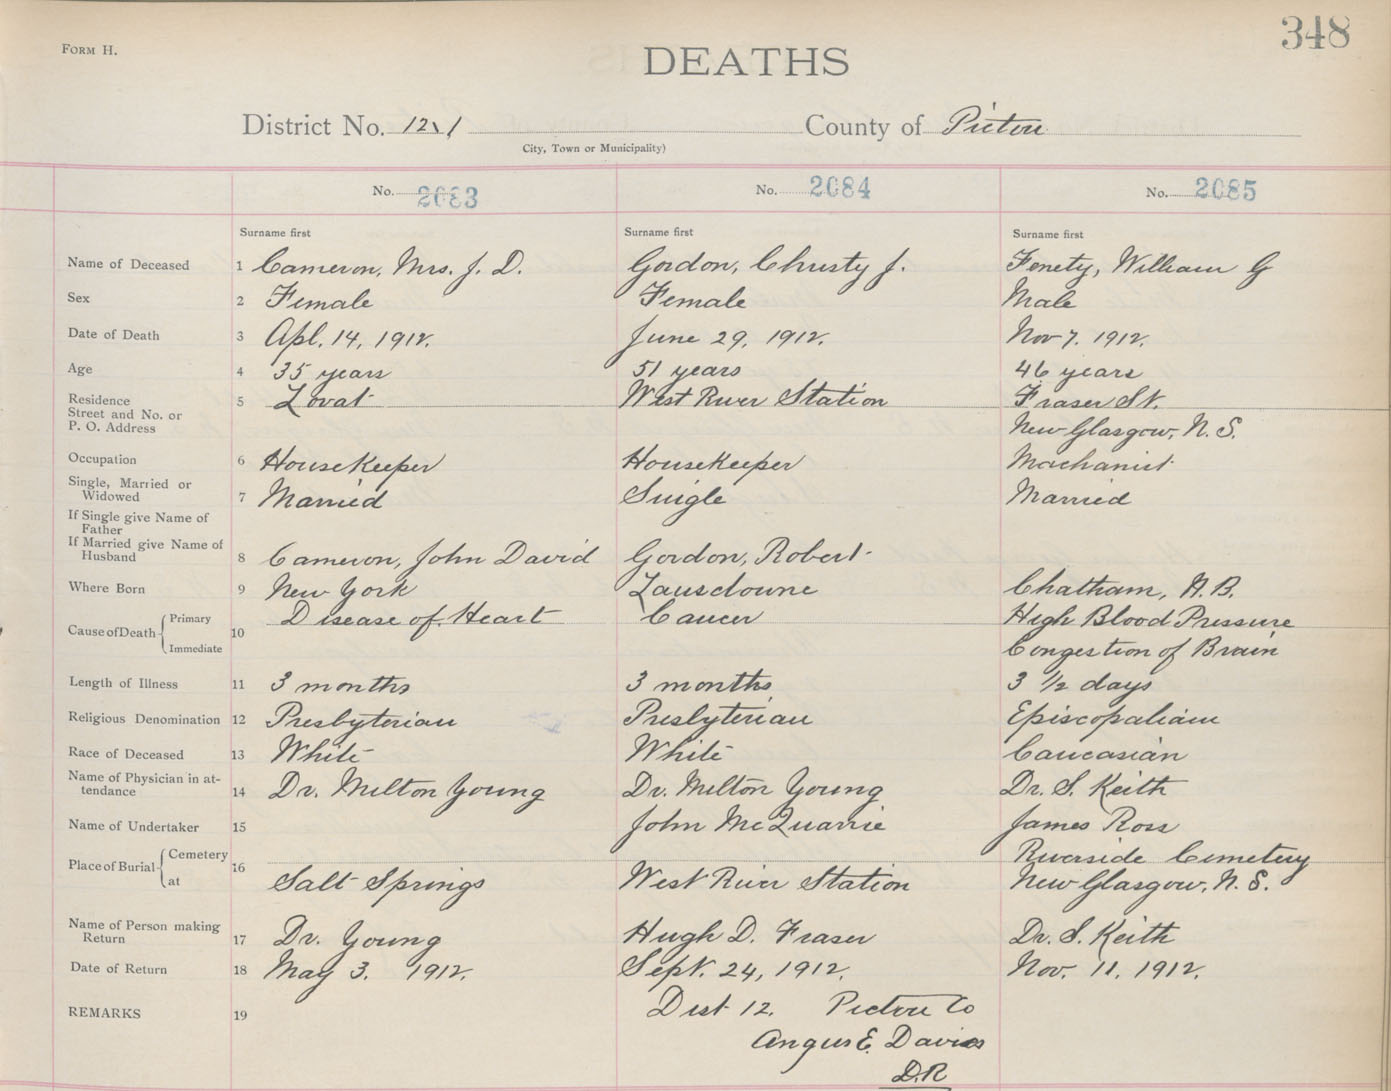 348
FORM H.
DEATHS
District No. 12\1 County of Pictou
City, Town or Municipality)
No. 2083 No. 2084 No. 2085
Surname first Surname first Surname first
Name of Deceased 1 Cameron, Mrs. J. D. Gordon, Christy J. Fenety, William G
Sex 2 Female Female Male
Date of Death 3 Apl. 14, 1912. June 29, 1912. Nov 7. 1912.
Age 4 35 years 51 years 46 years
Residence 5 Lovat West River Station Fraser St.
Street and No. or
P. O. Address New Glasgow, N. S.
Occupation 6 Housekeeper Housekeeper Machanist
Single, Married or
Widowed 7 Married Single Married
If Single give Name of
Father
If Married give Name of
Husband 8 Cameron, John David Gordon, Robert
Where Born 9 New York Lansdowne Chatham, N.B.
Cause of Death Primary 10 Disease of Heart Cancer High Blood Pressure
Immediate Congestion of Brain
Length of Illness 11 3 months 3 months 3 1/2 days
Religious Denomination 12 Presbyterian Presbyterian Episcopaliain
Race of Deceased 13 White White Caucasian
Name of Physician in at-
tendance 14 Dr. Melton Young Dr. Melton Young Dr. S. Keith
Name of Undertaker 15 John McQuarrie James Ross
Place of Burial Cemetery 16 Riverside Cemetery
at Salt Springs West River Station New Glasgow, N. S.
Name of Person making
Return 17 Dr. Young Hugh D. Fraser Dr. S. Keith
Date of Return 18 May 3. 1912. Sept. 24, 1912. Nov. 11. 1912.
REMARKS 19 Dist 12. Pictou Co
Angus E. Davies
D.R